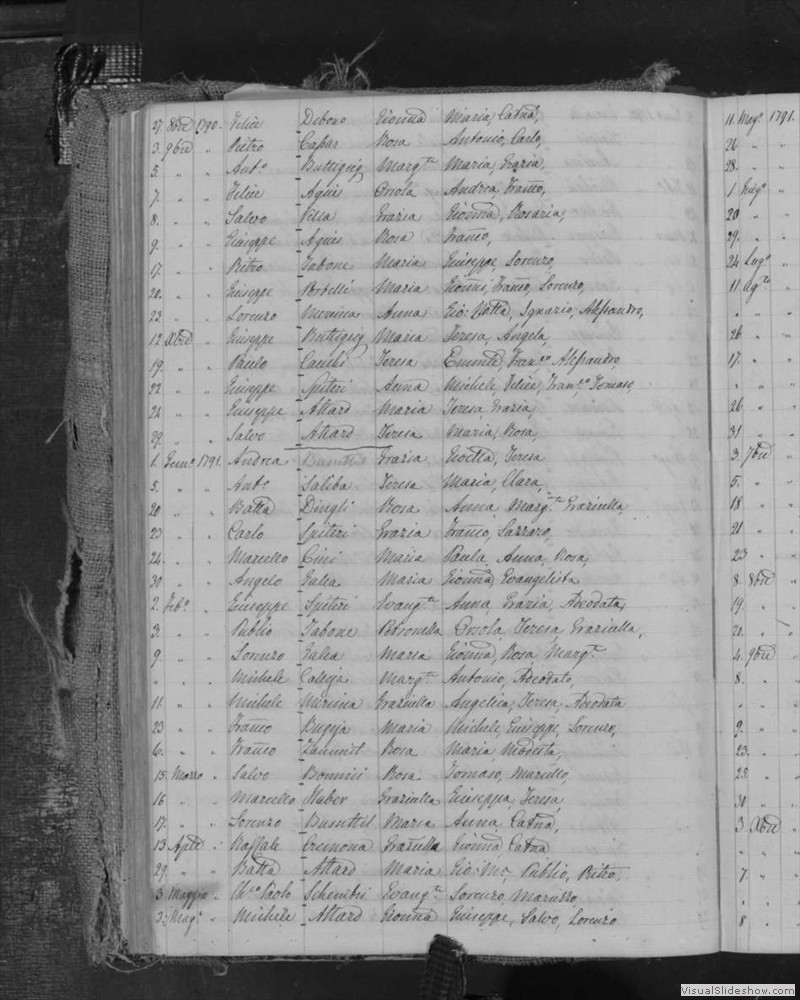 27. 8bre 1790. Felice Debono Gionna Maria, Catna,
3. 9bre " Pietro Caſsar Rosa Antonio, Carlo,
5. " " Anto. Buttigieg Margta. Maria, Grazia,
7. " " Felice Agius Orsola Andrea, Franco,
8. " " Salvo Vella Grazia Gionna, Rosaria,
9. " " Giuseppe Agius Rosa Franco,
17. " " Pietro Tabone Maria Giuseppe, Lorenzo,
20. " " " Giuseppe Portelli Maria Gionni, Franco, Lorenzo,
23. " " Lorenzo Mercieca Anna Gio: Batta, Ignazio, Aleſsandro,
12 Xbre " Giuseppe Buttigieg Maria Teresa, Angela,
19. " " Paulo Cauchi Teresa Franco Aleſsandro,
22 " " Giuseppe Spiteri Anna Michele Felice, Franco Tomaso,
24 " " Giuseppe Attard Maria Teresa, Grazia,
29. " " Salvo Attard Teresa Maria, Rosa,
1. Genno. 1791. Andrea Busuttil Grazia Teresa
5. " " Anto. Saliba Teresa Maria, Clara,
20 " " Batta Dingli Rosa Anna, Margta. Graziella,
23 " " Carlo Spiteri Grazia Franco, Lazzaro,
24. " " Marcello Cini Maria Paula, Anna, Rosa,
30 " " Angelo Galea Maria Gionna, Evangelista
2. Febo. " Giuseppe Spiteri Evangta. Anna, Grazia, Adeodata,
3. " " Publio Tabone Petronella Orsola, Teresa, Graziella,
9. " " Lorenzo Galea Maria Gionna, Rosa Margta.
" " " Michele Calleja Margta. Antonio, Adeodato,
11. " " Michele Graziella Angelica, Teresa, Adeodata
23 " " Franco Bugeja Maria Michele, Giuseppe, Lorenzo,
6. " " Franco Zammit Rosa Maria, Modesta,
15. Marzo " Salvo Bonnici Rosa Tomaso, Marcello,
16 " " Marcello Haber Graziella Giuseppa, Teresa,
17. " " Lorenzo Busuttil Maria Anna, Catna,
13 Aple " Raffale Cremona Graziella Gionna Catna
29. " " Batta Attard Maria Gio: Ma. Publio, Pietro,
3. Maggio " Paolo Schembri Evangta. Lorenzo, Maruzzo
3. Mago. " Michele Attard Gionna Giuseppe, Salvo, Lorenzo
11. Mago. 1791.
26 " "
28. " "
1 Giugo. "
20 " "
29. " "
24 Lugo. "
11 Agto. "
" " "
26 " "
17. " "
" " "
26 " "
31 " "
3. 7bre "
5. " "
18 " "
21 " "
23 " "
8. 8bre "
19. " "
20. " "
4. 9bre "
8. " "
" " "
9. " "
23. " "
25. " "
30 " "
3 Xbre "
" " "
7. " "
" " "
8 " "
VisualSlideshow.com